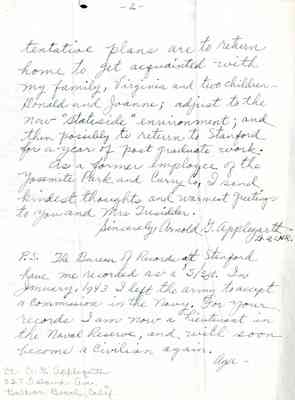 - 2 -
tentative plans are to return
home to get acquainted with
my family, Virginia and two children -
Donald and Joanne; adjust to the
new "Stateside" environment; and
then possibly to return to Stanford
for a year of post graduate work.
As a former employee of the
Yosemite Park and Curry Co, I send
kindest thoughts and warmest greetings
to you and Mrs Tresidder.
Sincerely Arnold G. Applegarth
Lt. USNR.
P.S. The Bureau of Records at Stanford
have me recorded as a S/Sgt. In
January, 1943 I left the army to accept
a commission in the Navy. For your
records I am now a Lieutenant in
the Naval Reserve, and will soon
become a civilian again.
Aga -
Lt. A. G. Applegarth
327 Island Ave.
Balboa Beach, Calif